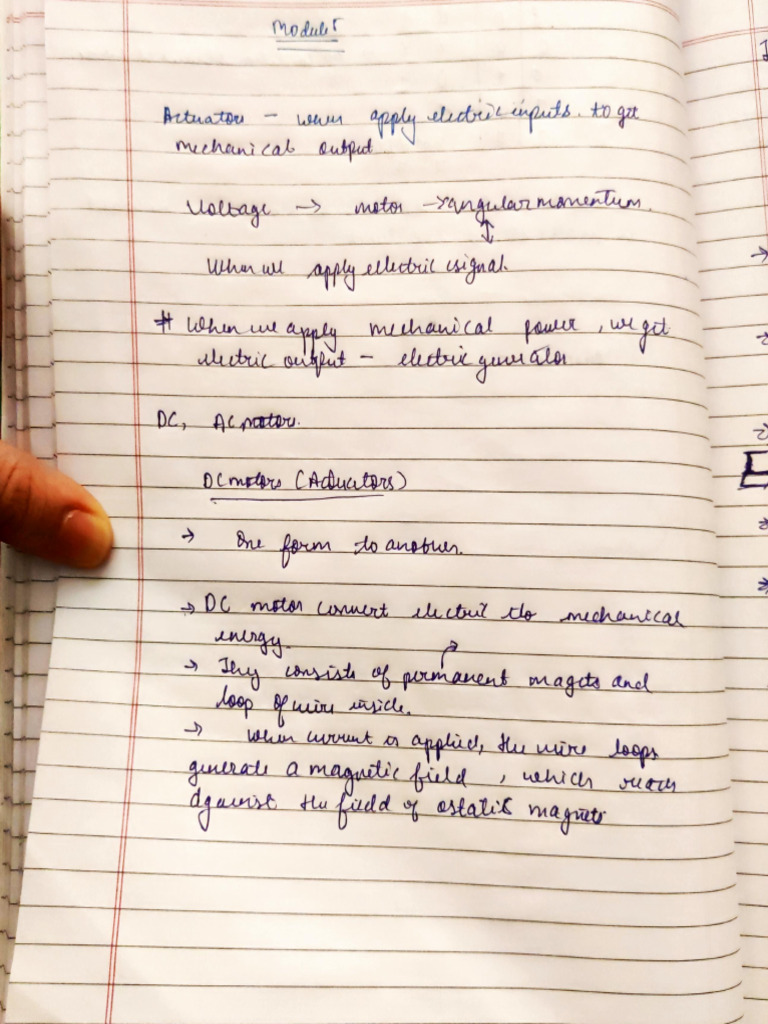 Module 5
Actuator - when apply electric inputs. to get
mechanical output.
Voltage → motor → angular momentum.
↕
When we apply electric signal.
# When we apply mechanical power, we get
electric output - electric generator
DC, AC motor.
DC motors (Actuators)
→ One form to another.
→ DC motor convert electric to mechanical
energy.
→ They consists of permanent magets and
loop of wire inside.
→ when current is applied, the wire loops
generate a magnetic field, which reacts
against the field of static magnets